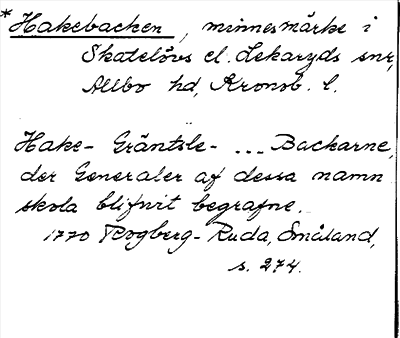 *Hakebacken, minnesmärke i
Skatelövs el. Lekaryds snr,
Allbo hd, Kronob. l.
Hake- Gräntsle- ... Backarne,
der Generaler af dessa namn
skola blifvit begrafne.
1770 Rogberg-Ruda, Småland,
s. 274.